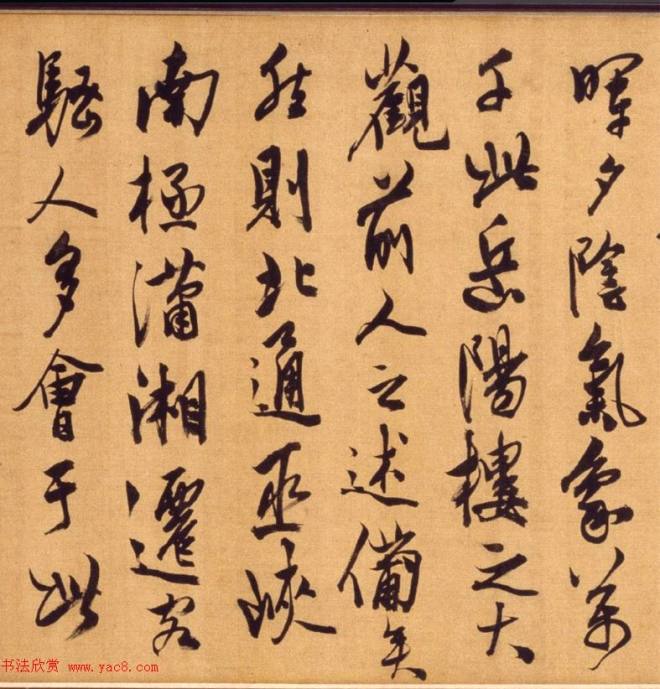 暉夕陰氣象萬
千此岳陽樓之大
觀前人之述備矣
然則北通巫峽
南極瀟湘遷客
騷人多會于此
书法欣赏 www.yac8.com